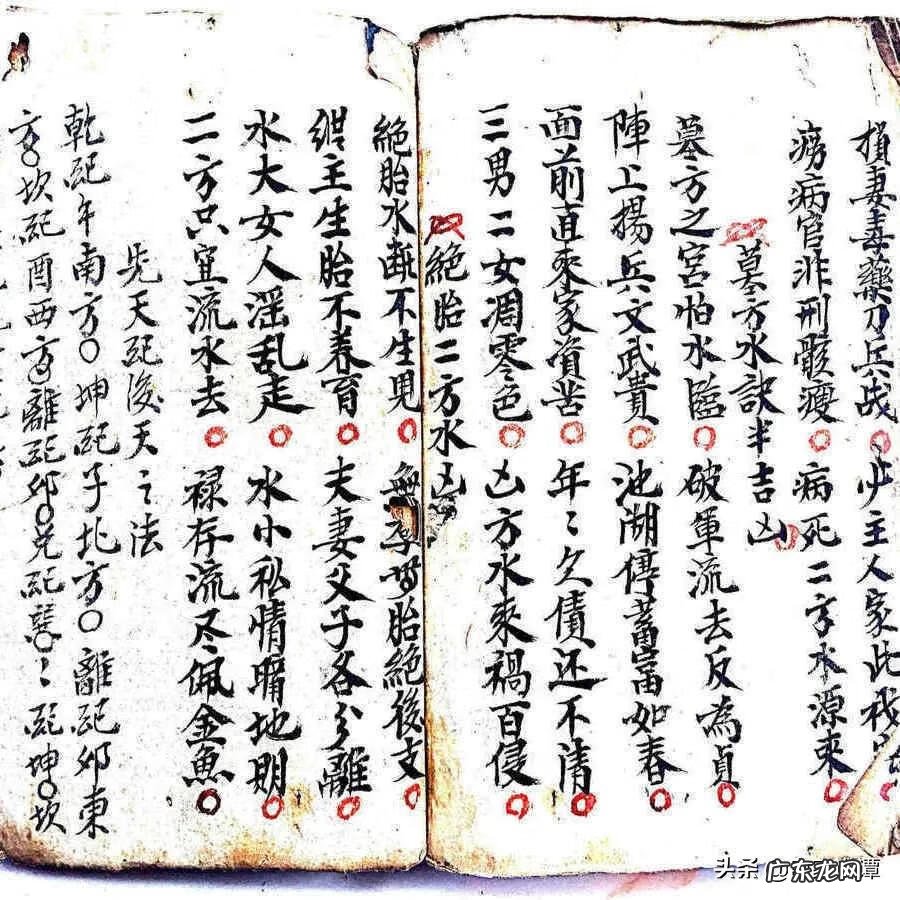 損妻毒藥刀兵战○少主人家此
痨病官非刑骸瘦○病死二方水源来○
墓方水訣半吉凶○
墓方之宮怕水臨○破軍流去反為貞○
陣上揚兵文武貴○池湖停蓄富如春○
面前直来家資苦○年〻欠債还不清○
三男二女凋零色○凶方水来禍百侵○
絕胎二方水凶
絕胎水断不生児○無孕 胎絕後支○
主生胎不养育○夫妻父子各分離○
水大女人淫乱走○水小私情暗地期○
二方只宜流水去○禄存流尽佩金魚○
先天配後天之法
乾配午南方○坤配子北方○離配卯東
方○坎配酉西方○離配卯○兌配巽○〻配坤○坎
头条
广东龙网